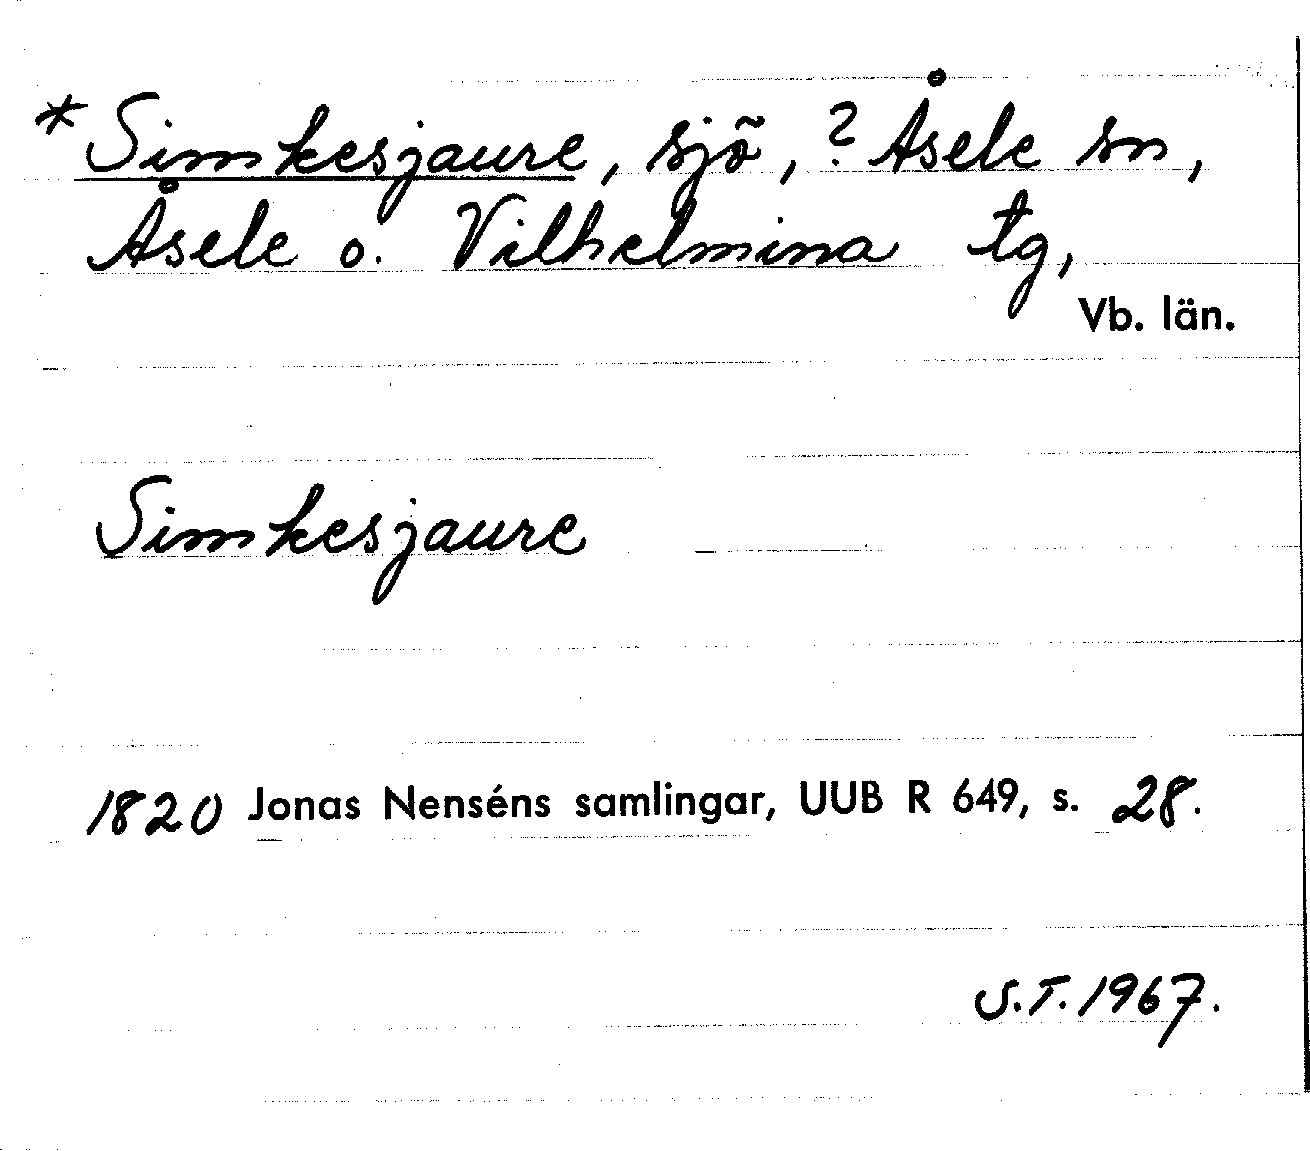 *Simkesjaure, sjö, ? Åsele sn,
Åsele o. Vilhelmina tg,
Vb. län.
Simkesjaure
1820 Jonas Nenséns samlingar, UUB R 649, s. 28.
S.T. 1967.